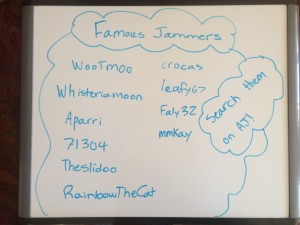 Famous Jammers
WooTmoo
Whisteriamoon
Aparri
71304
Theslidoo
RainbowTheCat
crocas
leafy67
Faly32
mmkay
Search them
on AJ!